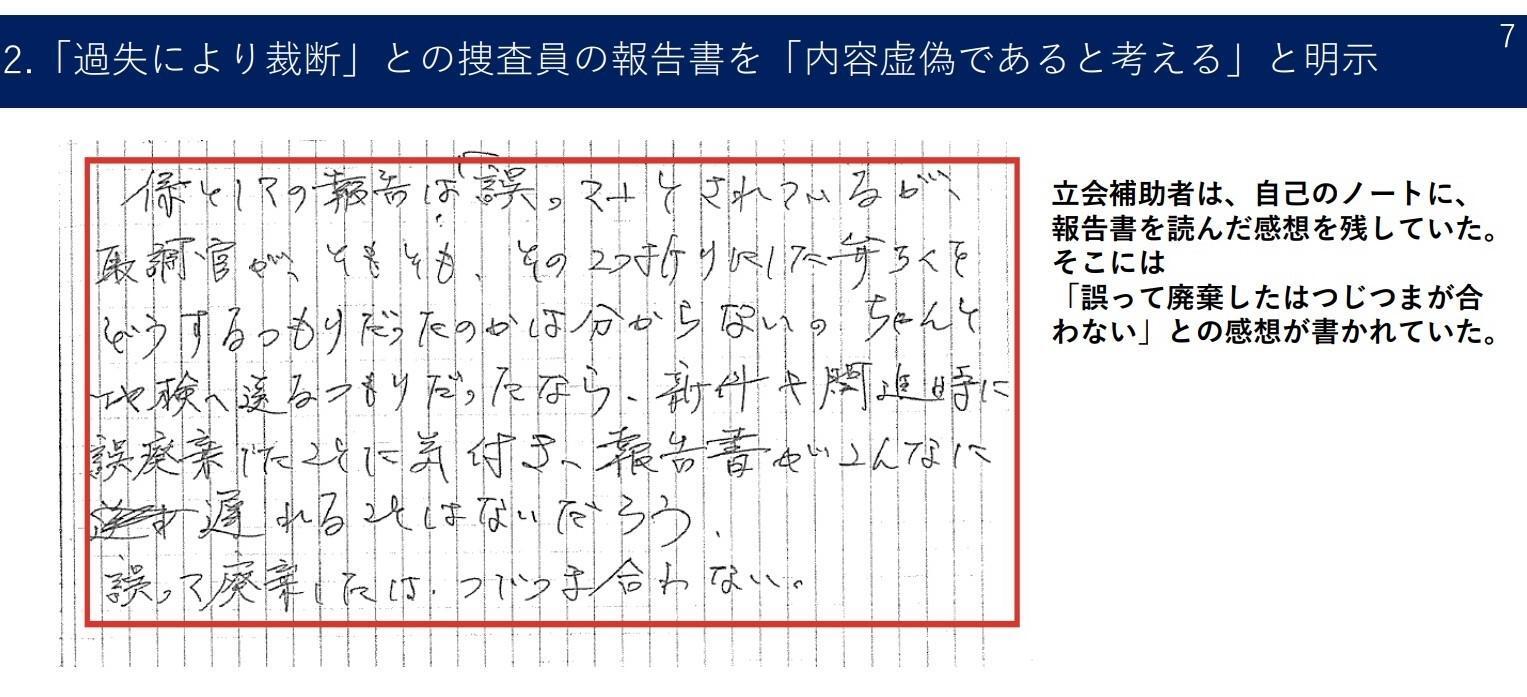 7
2.「過失により裁断」との捜査員の報告書を「内容虚偽であると考える」と明示
係としての報告は「誤って」とされているが、
取調官が、そもそも、その2つ折りにした弁ろくを
どうするつもりだったのかは分からない。ちゃんと
地検へ送るつもりだったなら、新件や関進時に
誤廃棄したことに気付き、報告書がこんなに
遅れることはないだろう。
誤って廃棄したは、つじつま合わない。
立会補助者は、自己のノートに、
報告書を読んだ感想を残していた。
そこには
「誤って廃棄したはつじつまが合
わない」との感想が書かれていた。